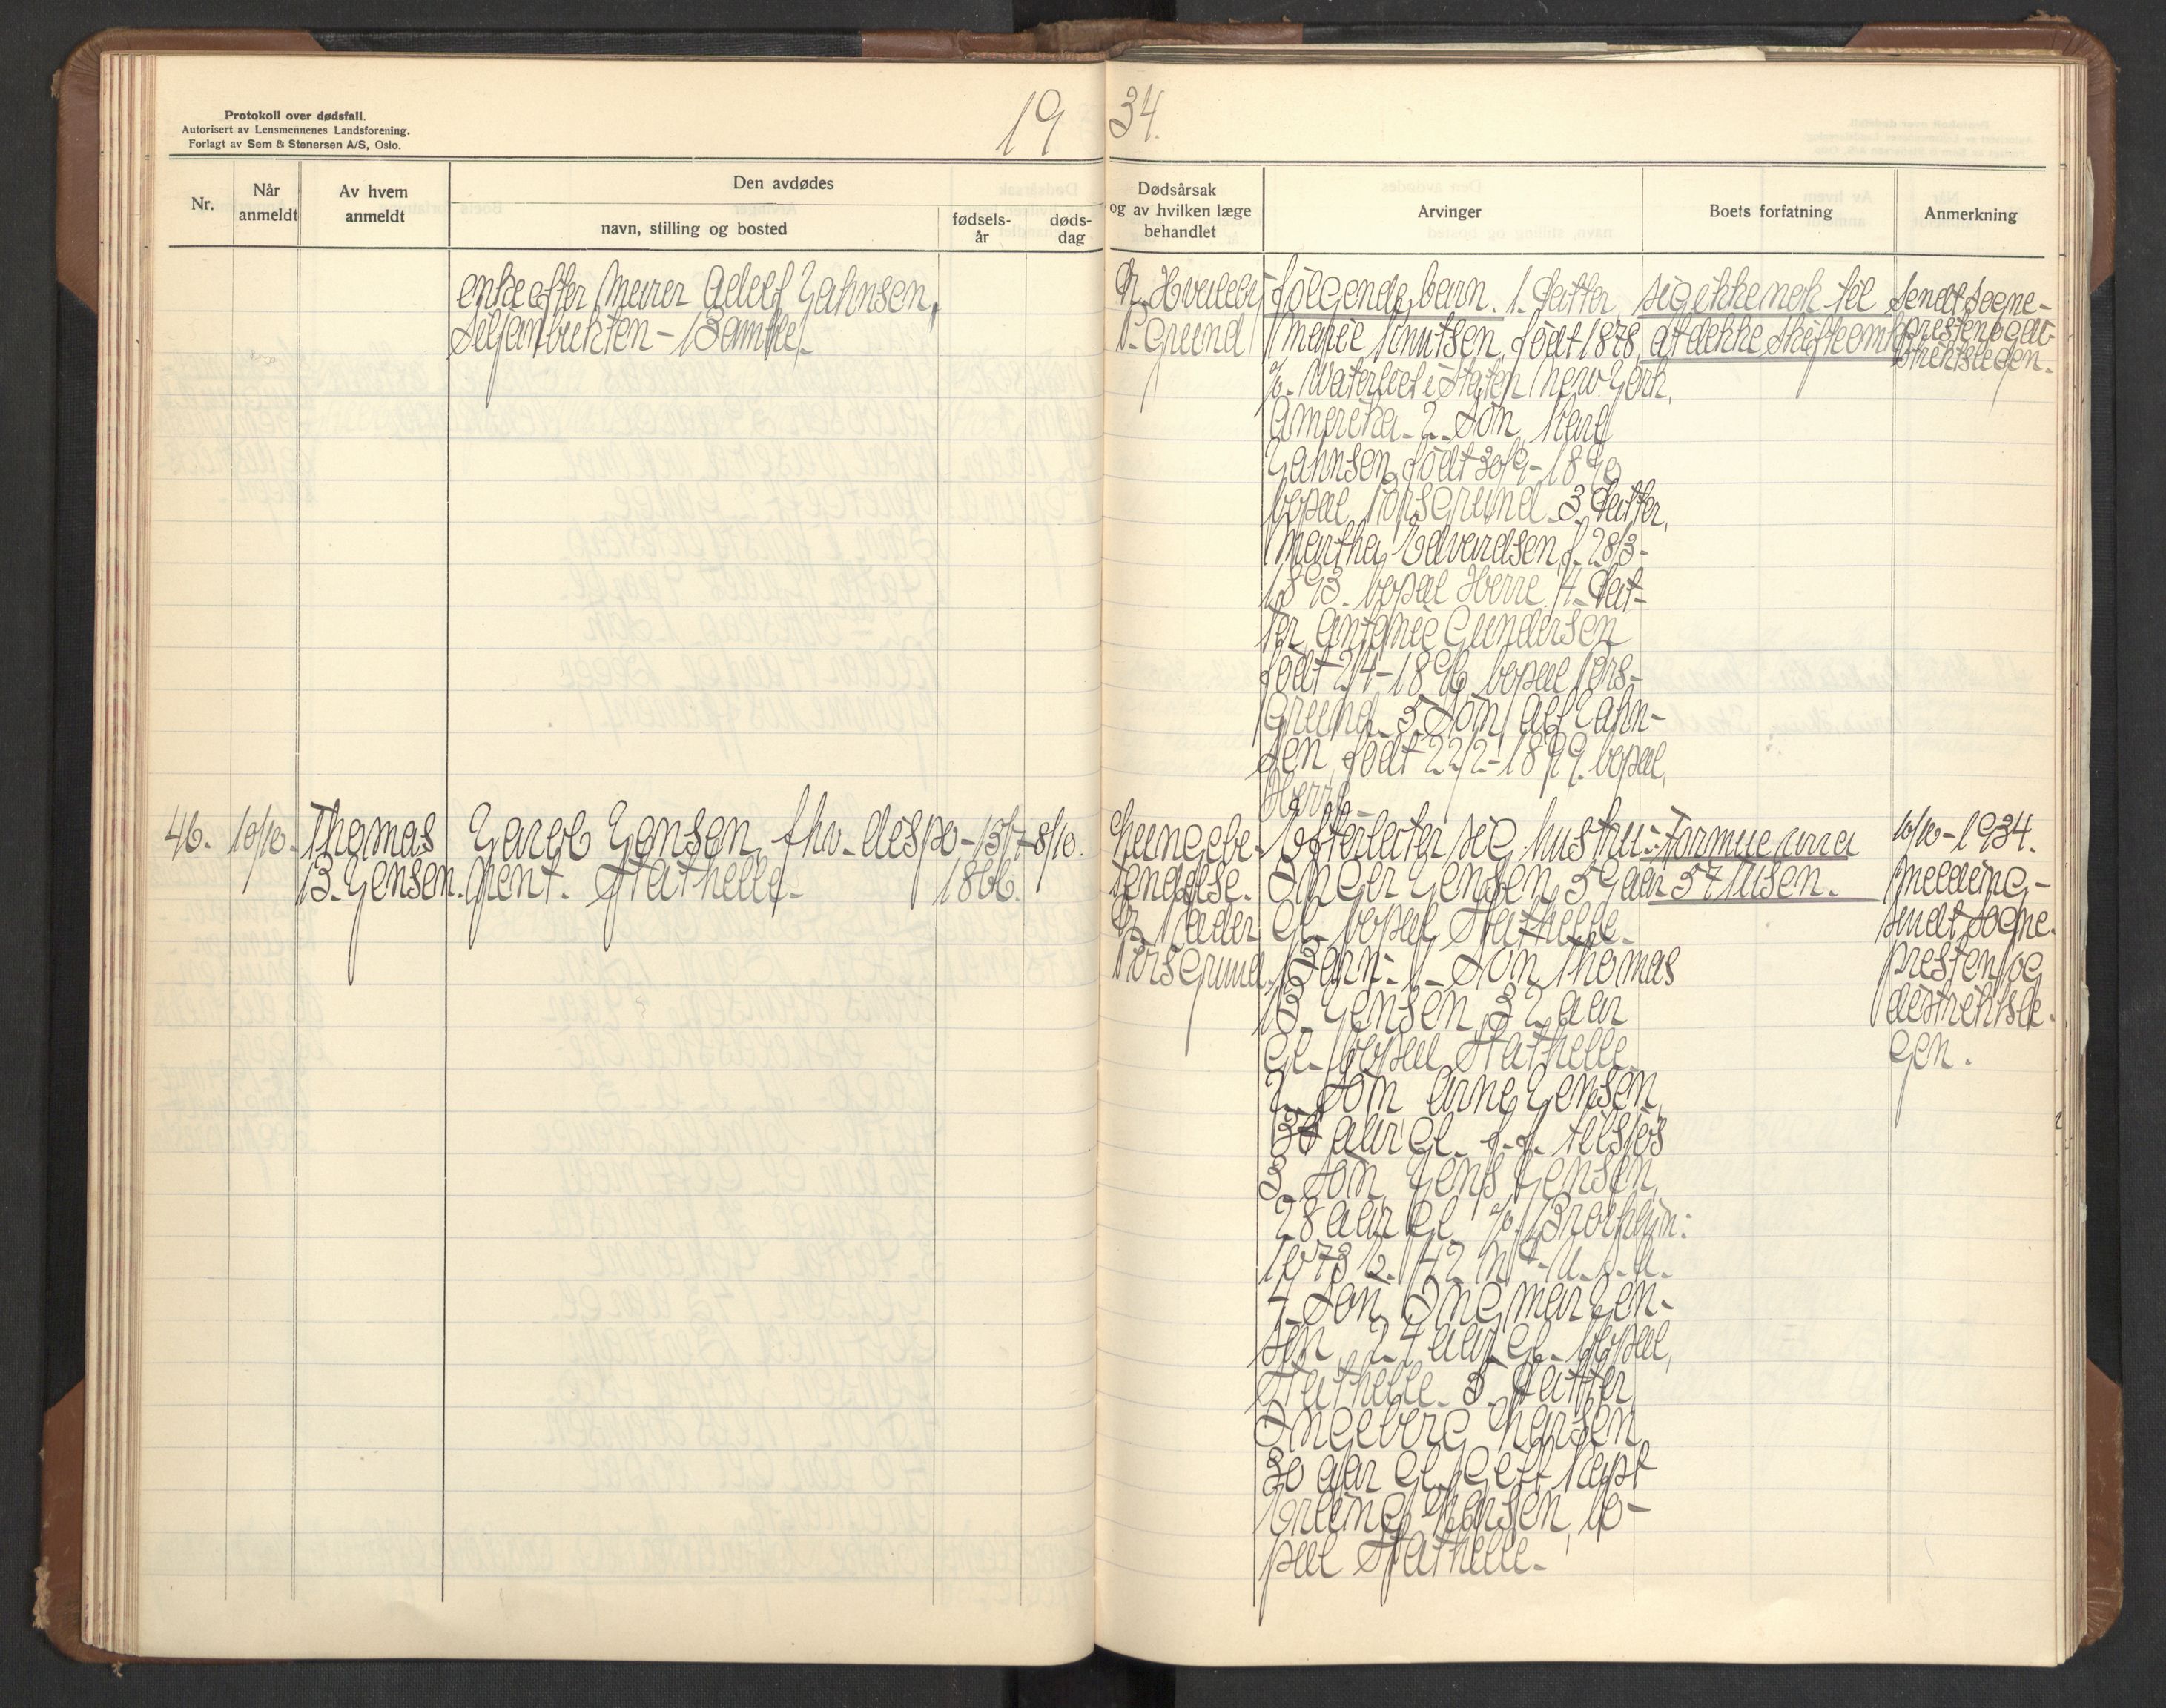 Protokoll over dødsfall.
Autorisert av Lensmennenes Landsforening.
Forlagt av Sem & Stenersen A/S, Oslo.
19
34.
Nr.
Når anmeldt
Av hvem anmeldt
Den avdødes
navn, stilling og bosted
fødsels-år
døds-dag
Dødsårsak og av hvilken læge behandlet
Arvinger
Boets forfatning
Anmerkning
enke efter Murer Adolf Jahnsen,
Siljanbukten - Bamble.
P. Grund
følgende barn. 1. Datter
Marie Knutsen, født 1878,
i Staten New York,
Amerika. 2. Søn, Karl
Jahnsen, født 30/9-1890
bopæl Porsgrund. 3. Datter,
Martha Edvardsen, f. 28/3-
1893. bopæl Herre. 4. Dat-
ter Antonie Gundersen
født 2/4-1896, bopæl Pors-
grund. 5. Søn, Alf Jahn-
sen, født 22/2-1899. bopæl,
Herre.
sig ikke nok til
at dekke skifteomk.
sendt Sogne-
presten og di-
striktslegen.
46.
10/10.
Thomas
B. Jensen.
Jacob Jensen, fhv. dispo-
nent. Stathelle.
13/7-
1866.
8/10.
Lungebe-
tendelse.
Dr. Møller
Porsgrund.
Efterlater sig hustru:
Inger Jensen, 59 aar
gl. bopæl Stathelle.
Barn: 1. Søn Thomas
B. Jensen, 32 aar
gl. bopæl Stathelle.
2. Søn Arne Jensen,
aar gl. f.t. tilsjøs
3. Søn, Jens Jensen,
28 aar gl. Brooklyn:
1073 1/2. 42 nt. U.S.A.
4. Søn, Ingmar Jen-
sen, 24 aar gl. bopæl,
Stathelle. 5. Datter
Ingeborg Hansen,
30 aar gl. gift Kapt
Erling Hansen, bo-
pæl Stathelle.
Formue
57 tusen.
10/10-1934.
Melding-
sendt Sogne-
presten og
distriktsle-
gen.